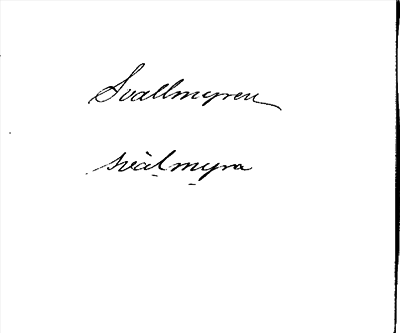 Svallmyren
svàl myra